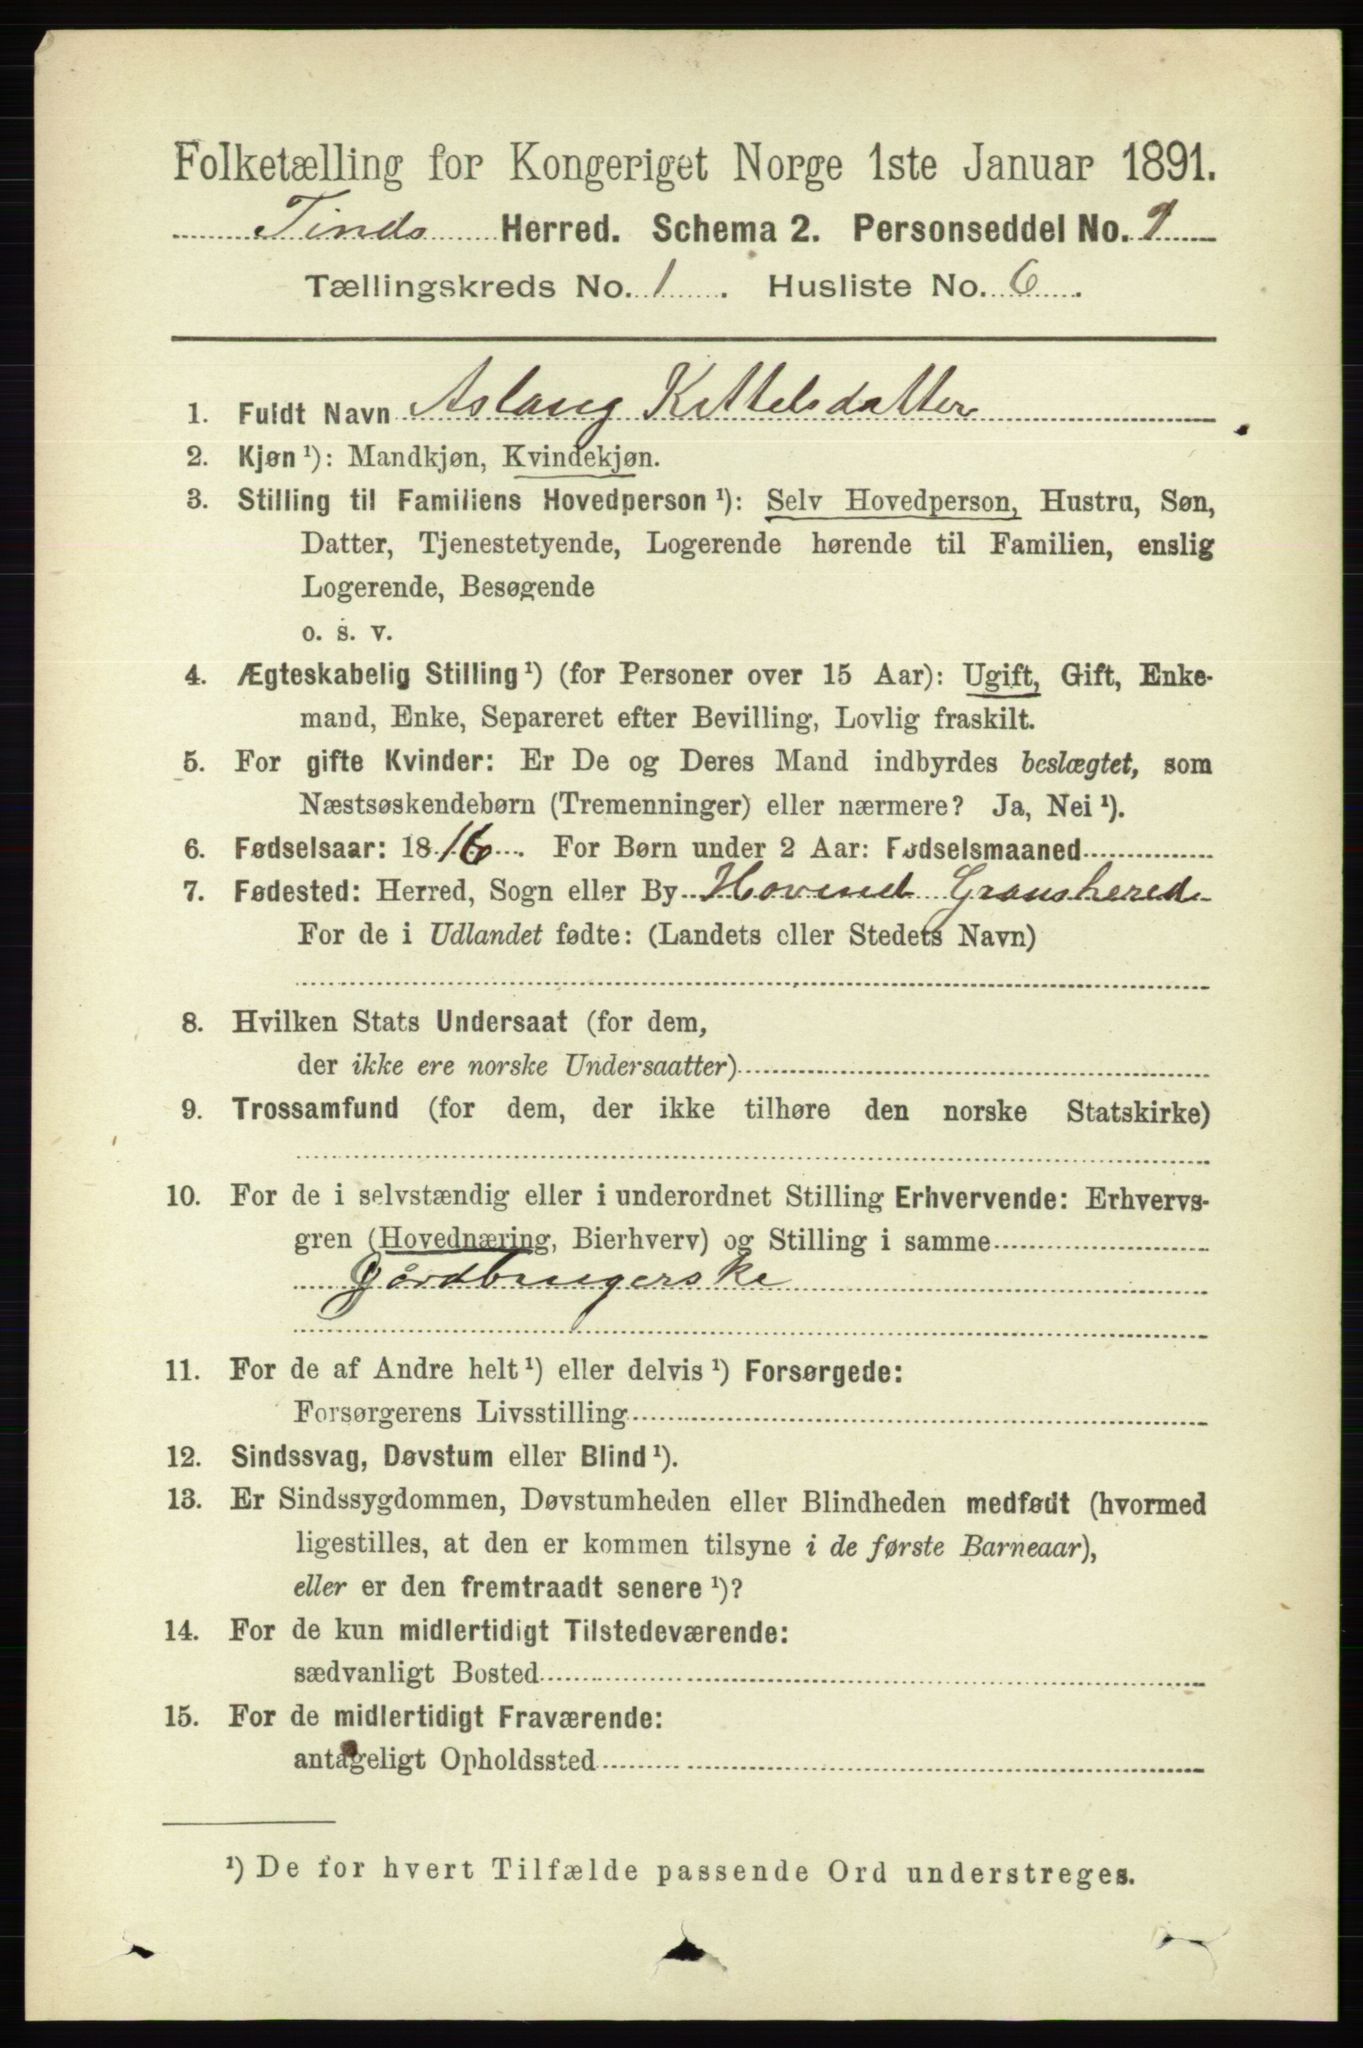 Folketælling for Kongeriget Norge 1ste Januar 1891.
Tinds Herred. Schema 2. Personseddel No. 1
Tællingskreds No. 1. Husliste No. 6.
1. Fuldt Navn Aslaug Kittelsdatter
2. Kjøn ¹): Mandkjøn, Kvindekjøn.
3. Stilling til Familiens Hovedperson ¹): Selv Hovedperson, Hustru, Søn,
Datter, Tjenestetyende, Logerende hørende til Familien, enslig
Logerende, Besøgende
o. s. v.
4. Ægteskabelig Stilling ¹) (for Personer over 15 Aar): Ugift, Gift, Enke-
mand, Enke, Separeret efter Bevilling, Lovlig fraskilt.
5. For gifte Kvinder: Er De og Deres Mand indbyrdes beslægtet, som
Næstsøskendebørn (Tremenninger) eller nærmere? Ja, Nei ¹).
6. Fødselsaar: 1816. For Børn under 2 Aar: Fødselsmaaned
7. Fødested: Herred, Sogn eller By Hovind Gransherred
For de i Udlandet fødte: (Landets eller Stedets Navn)
8. Hvilken Stats Undersaat (for dem,
der ikke ere norske Undersaatter)
9. Trossamfund (for dem, der ikke tilhøre den norske Statskirke)
10. For de i selvstændig eller i underordnet Stilling Erhvervende: Erhvervs-
gren (Hovednæring, Bierhverv) og Stilling i samme
Gårdbrugerske
11. For de af Andre helt ¹) eller delvis ¹) Forsørgede:
Forsørgerens Livsstilling
12. Sindssvag, Døvstum eller Blind ¹).
13. Er Sindssygdommen, Døvstumheden eller Blindheden medfødt (hvormed
ligestilles, at den er kommen tilsyne i de første Barneaar),
eller er den fremtraadt senere ¹)?
14. For de kun midlertidigt Tilstedeværende:
sædvanligt Bosted
15. For de midlertidigt Fraværende:
antageligt Opholdssted
¹) De for hvert Tilfælde passende Ord understreges.